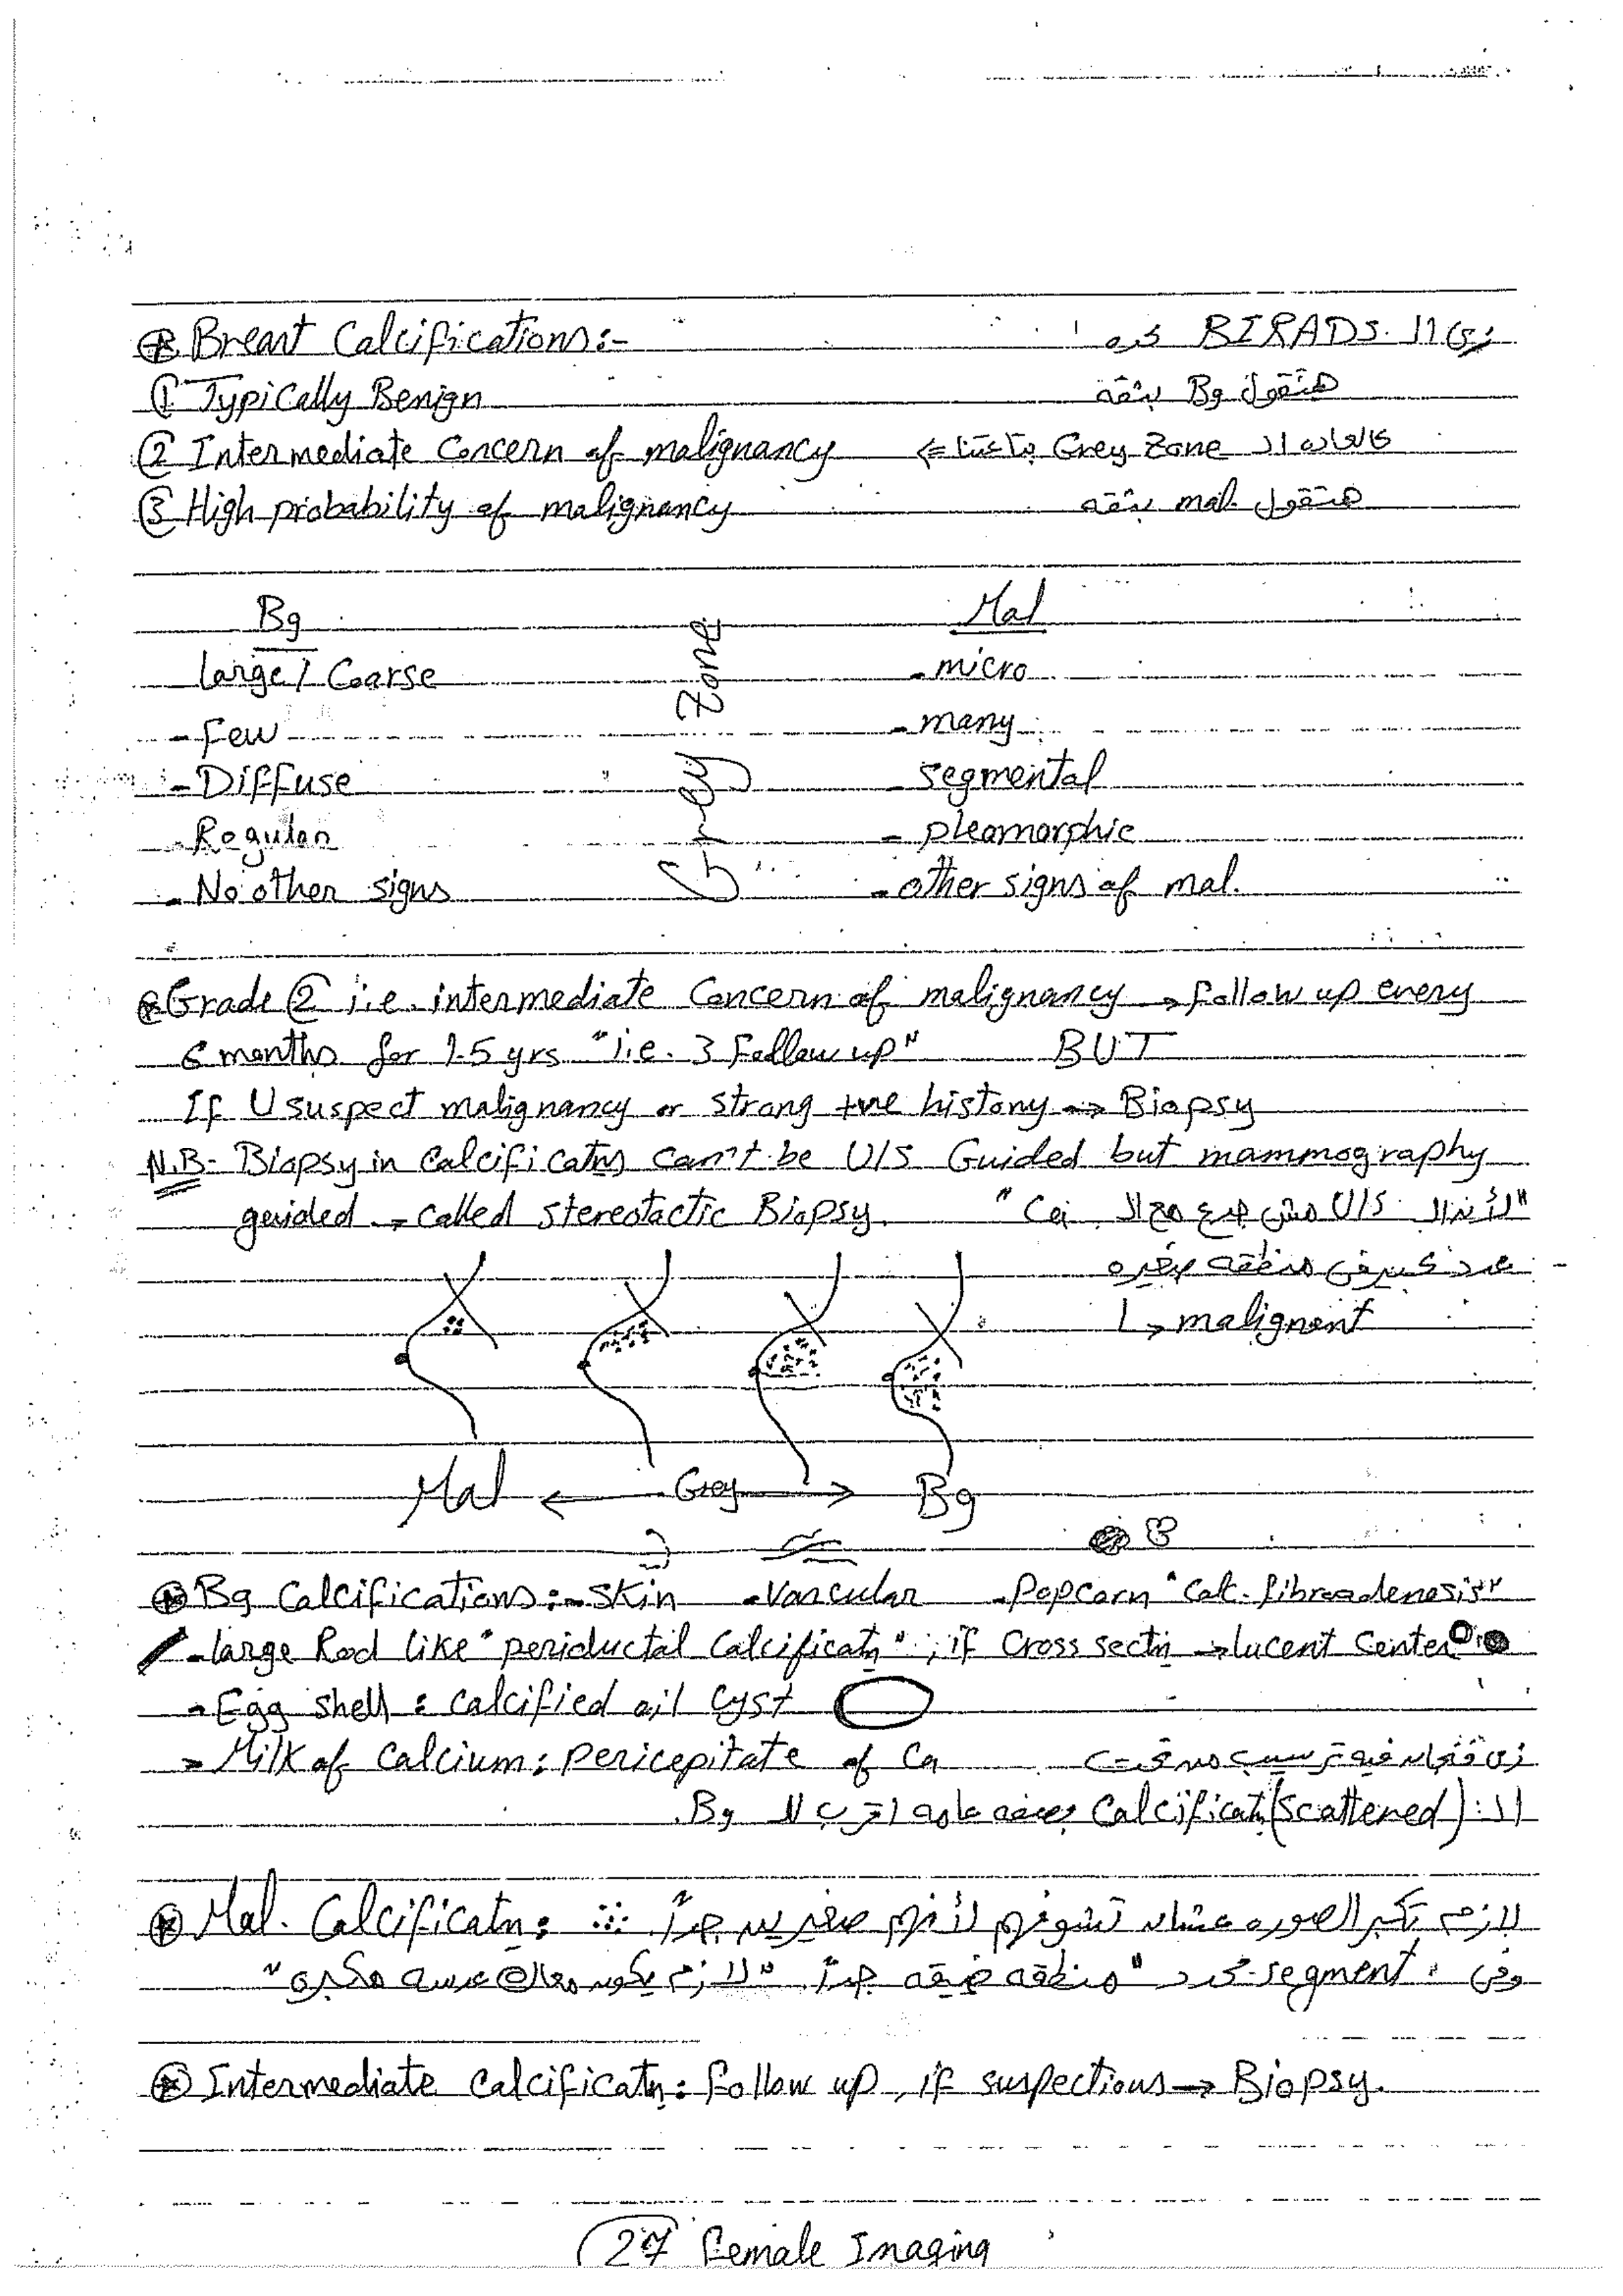 ⊛ Breast Calcifications:- زى الـ BIRADS كده
① Typically Benign هنقول Bg بثقه
② Intermediate Concern of malignancy ⇐ بتاعتنا Grey Zone كالعاده الـ
③ High probability of malignancy هنقول mal. بثقه
Bg Grey Zone Mal
large / Coarse - micro
- Few - many
- Diffuse - segmental
- Regular - pleomorphic
- No other signs - other signs of mal.
⊛ Grade ② i.e. intermediate Concern of malignancy → Follow up every
6 months for 1.5 yrs "i.e. 3 Follow up" BUT
If U suspect malignancy or strong +ve history → Biopsy
N.B- Biopsy in Calcificatn can't be U/S Guided but mammography
guided → called stereotactic Biopsy. "لأن الـ U/S مش جدع مع الـ Ca"
- عدد كبير فى منطقه صغيره
↳ malignant
Mal ← Grey → Bg
⊛ Bg Calcifications:- Skin - Vascular - Popcorn "Calc. fibroadenosis"
- large Rod like "periductal Calcificatn", if Cross sectn → lucent Center
- Egg shell: calcified oil cyst
- Milk of Calcium: pericepitate of Ca زى فنجان فيه ترسيب من تحت
الـ: Calcificatn (scattered) بصفه عامه اقرب للـ Bg.
⊛ Mal. Calcificatn: لازم تكبر الصوره عشان تشوفهم لأنهم صغيرين جداً
وفى segment محدد "منطقه ضيقه جداً" "لازم يكون معاك عدسه مكبره"
⊛ Intermediate Calcificatn: Follow up, if suspections → Biopsy.
27 Female Imaging